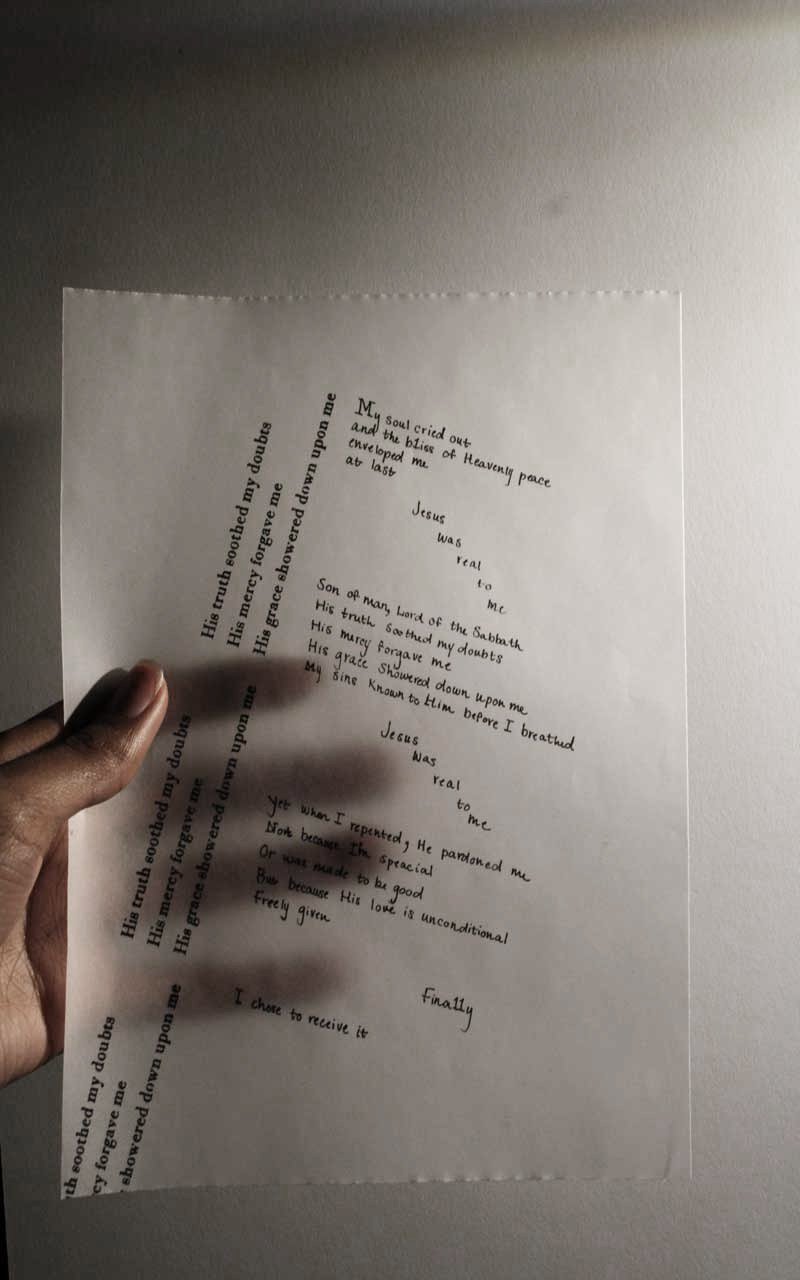 My soul cried out
and the bliss of Heavenly peace
enveloped me
at last
Jesus
was
real
to
me
Son of man, Lord of the Sabbath
His truth soothed my doubts
His mercy forgave me
His grace showered down upon me
My sins known to Him before I breathed
Jesus
was
real
to
me
Yet when I repented, He pardoned me
Not because I'm speacial
Or was made to be good
But because His love is unconditional
Freely given
Finally
I chose to receive it
His truth soothed my doubts
His mercy forgave me
His grace showered down upon me
His truth soothed my doubts
His mercy forgave me
His grace showered down upon me
th soothed my doubts
cy forgave me
showered down upon me